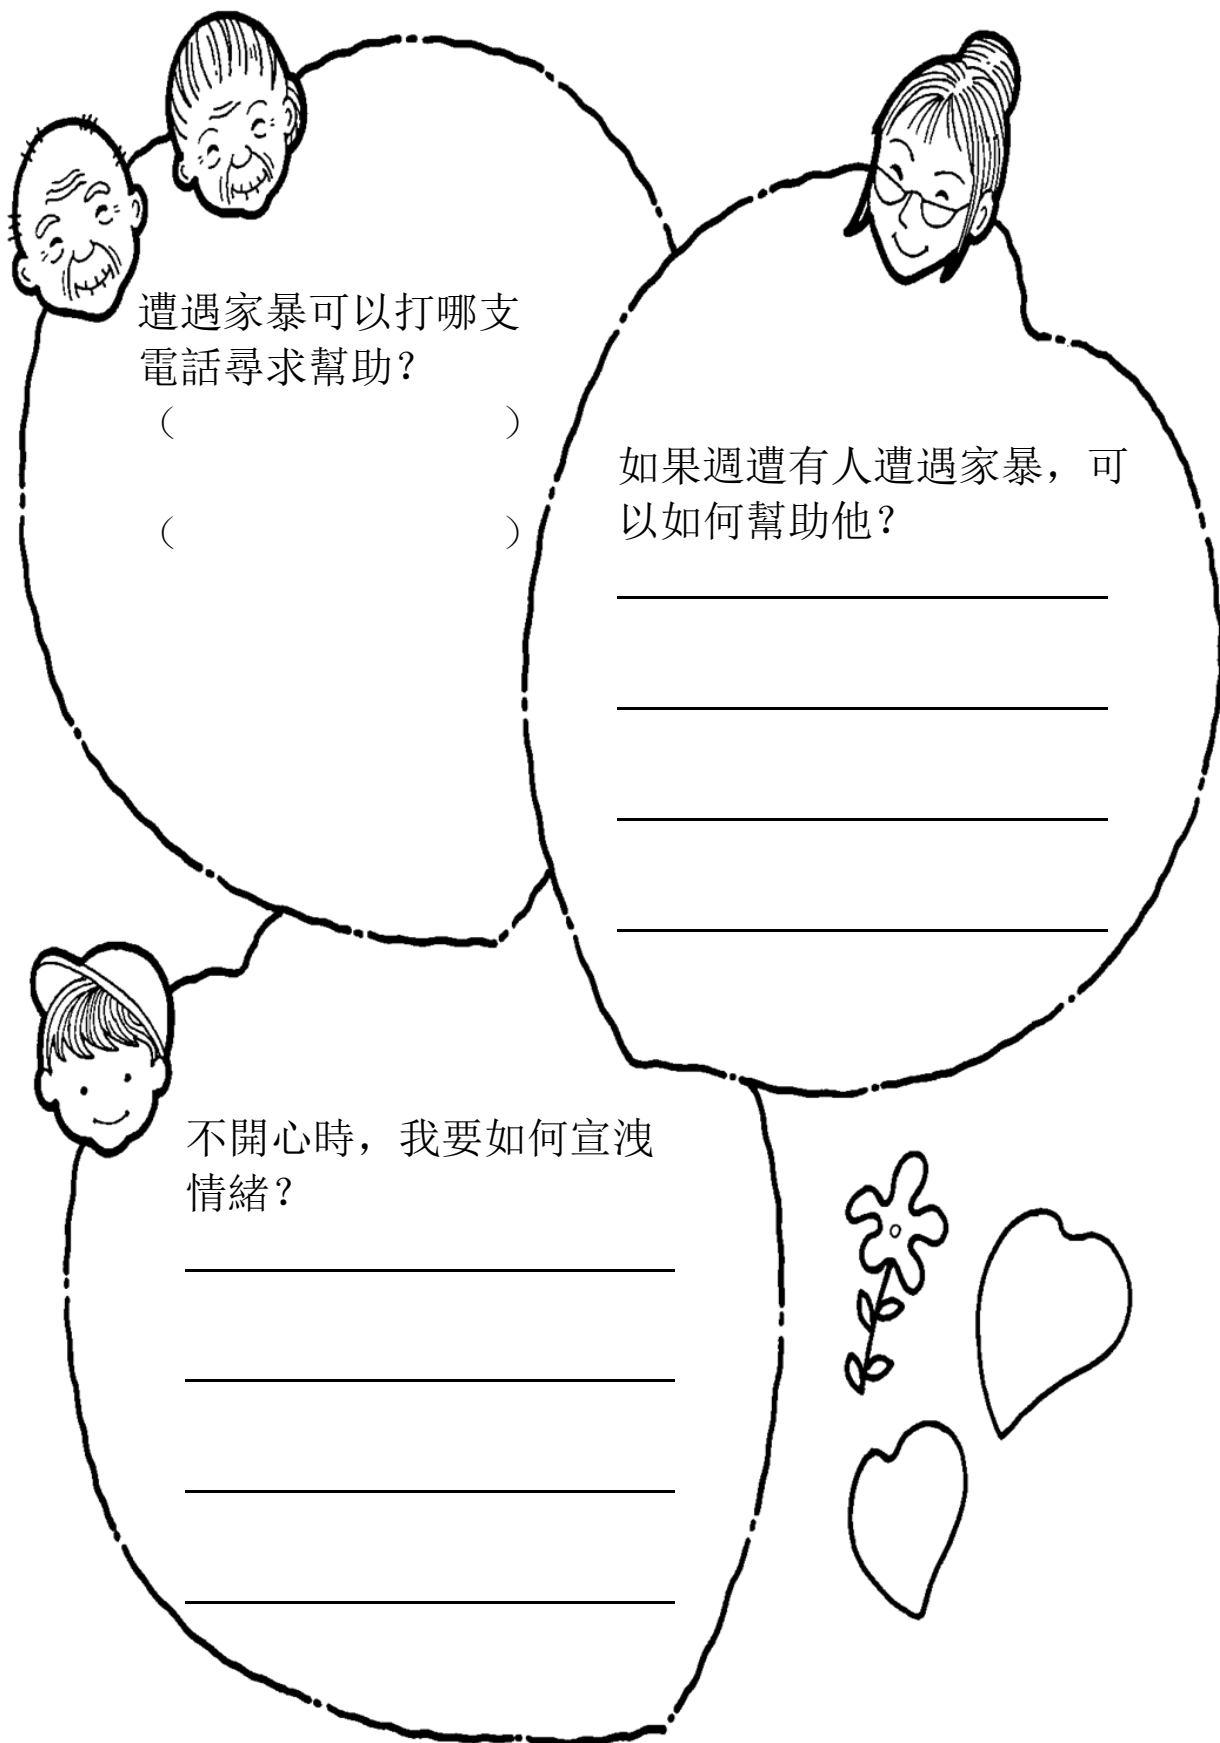 遭遇家暴可以打哪支
電話尋求幫助？
（　　　　　　　）
（　　　　　　　）
如果週遭有人遭遇家暴，可
以如何幫助他？
不開心時，我要如何宣洩
情緒？